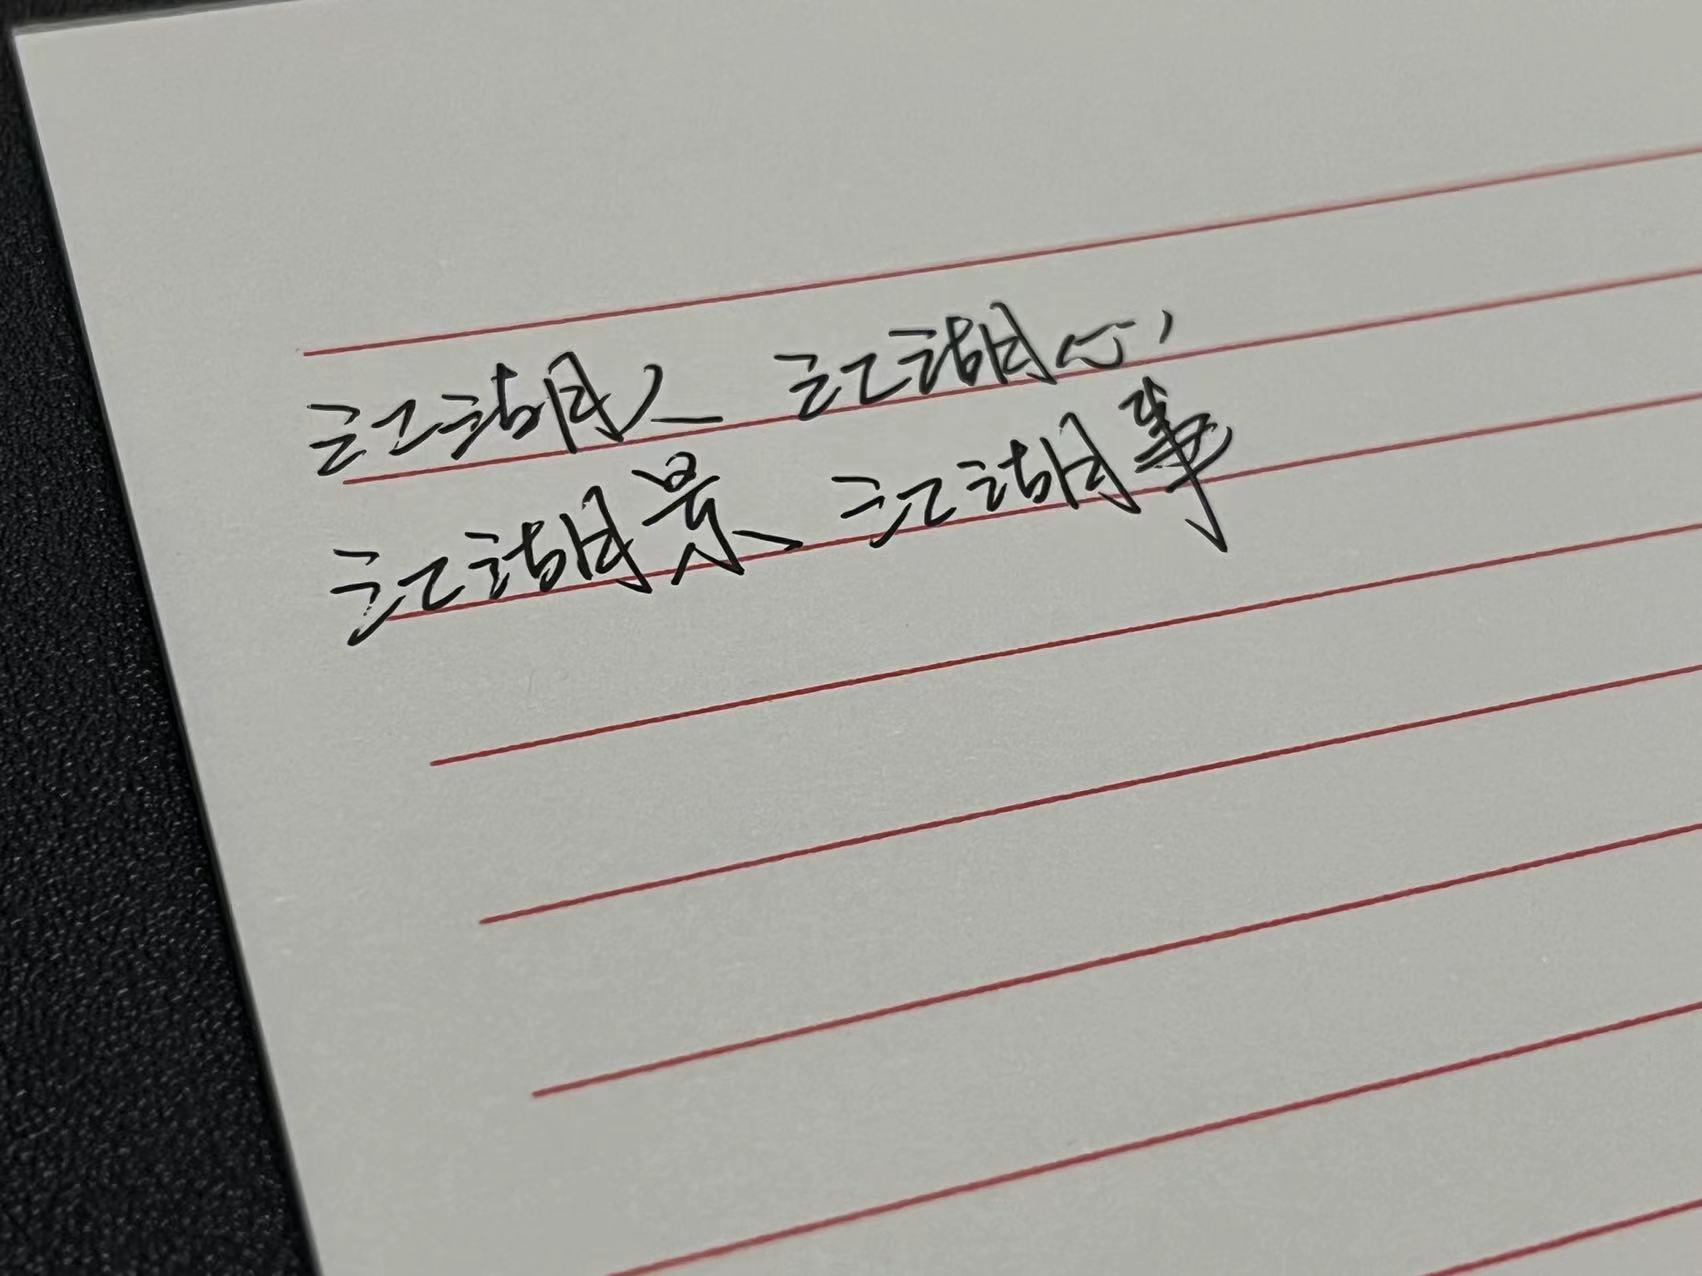 江湖人 江湖心
江湖景 江湖事